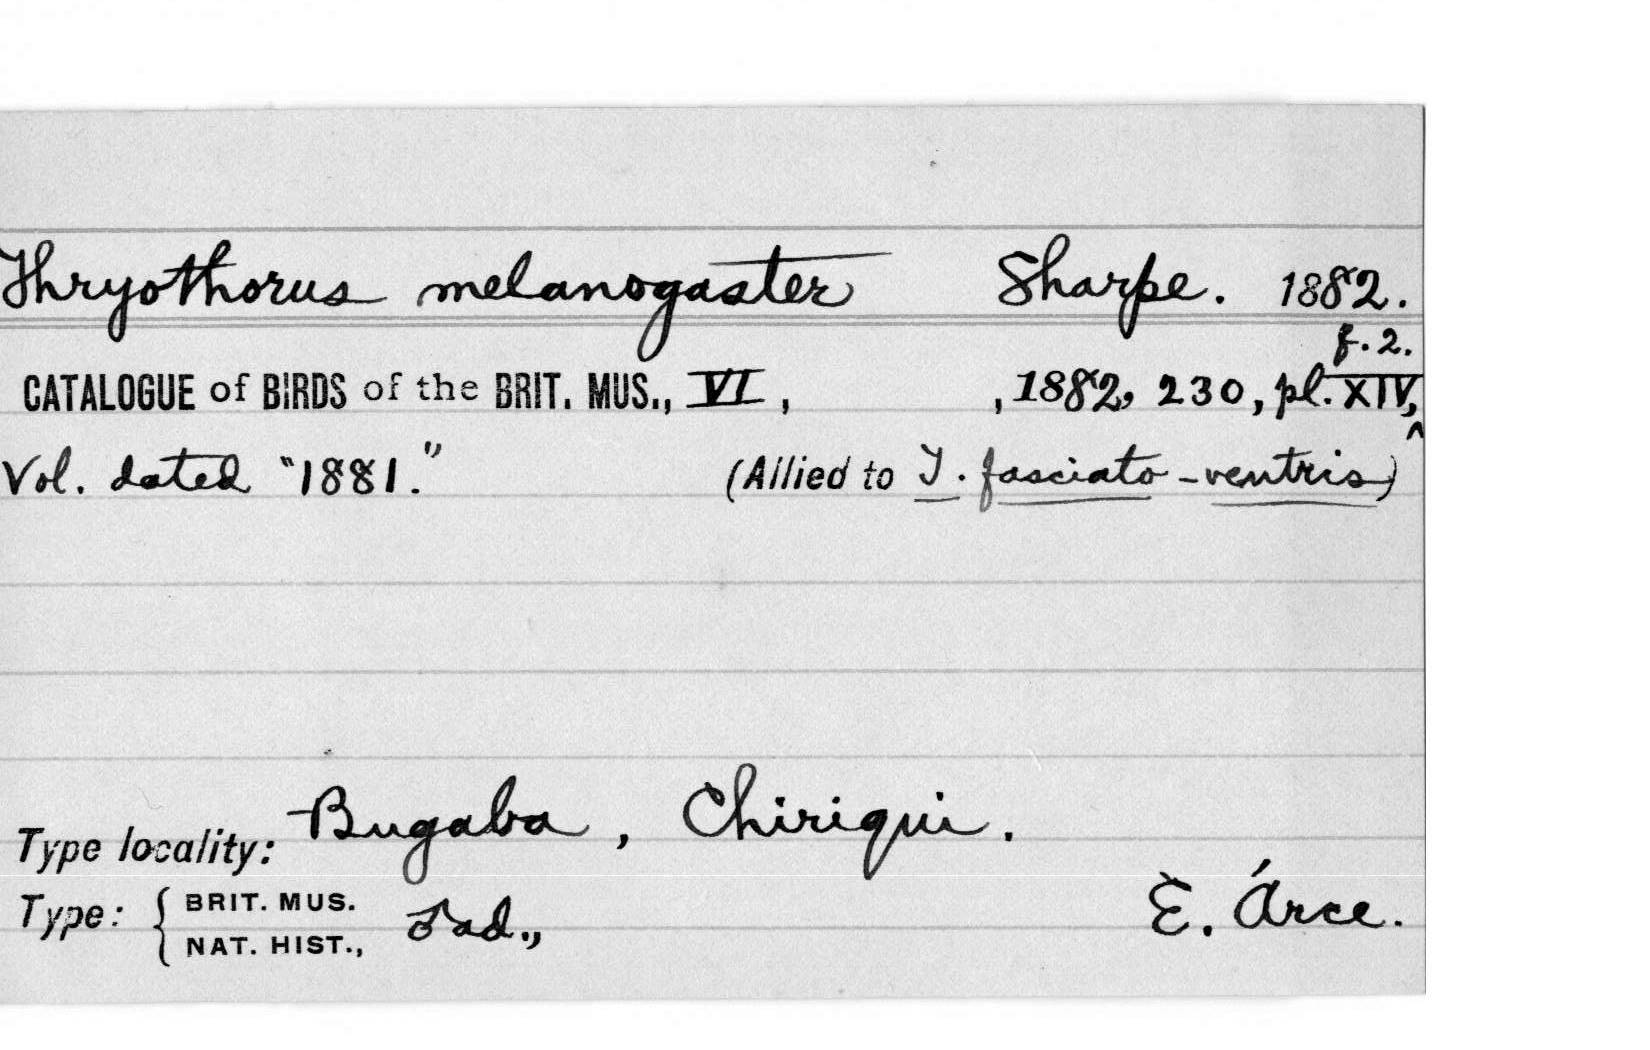 Thryothorus melanogaster Sharpe. 1882.
f. 2.
CATALOGUE of BIRDS of the BRIT. MUS., VI, , 1882, 230, pl. XIV, ^
Vol. dated "1881." (Allied to T. fasciato-ventris)
Type locality: Bugaba, Chiriqui.
Type: { BRIT. MUS. NAT. HIST., ♂ ad., E. Árce.